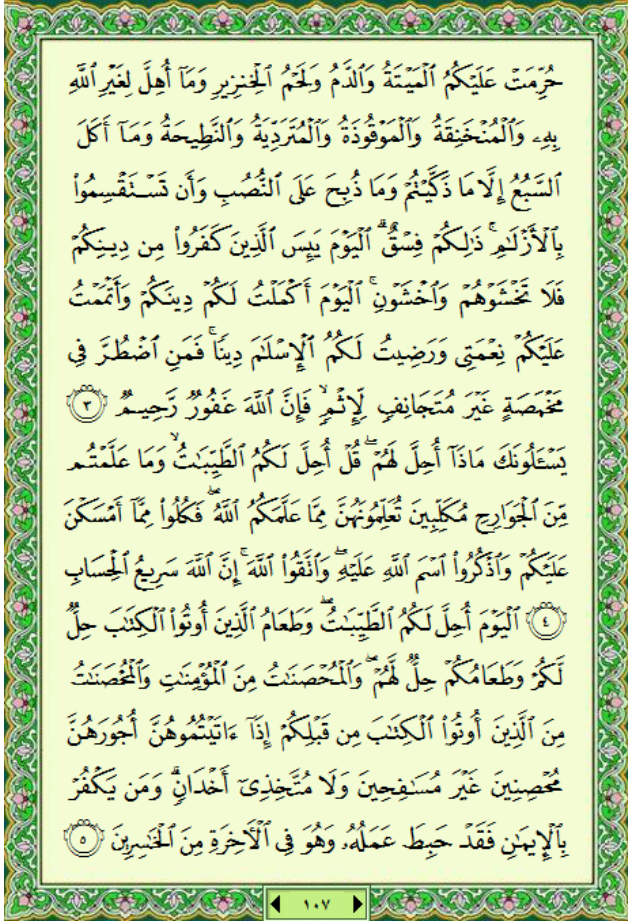 حُرِّمَتْ عَلَيْكُمُ ٱلْمَيْتَةُ وَٱلدَّمُ وَلَحْمُ ٱلْخِنزِيرِ وَمَآ أُهِلَّ لِغَيْرِ ٱللَّهِ
بِهِۦ وَٱلْمُنْخَنِقَةُ وَٱلْمَوْقُوذَةُ وَٱلْمُتَرَدِّيَةُ وَٱلنَّطِيحَةُ وَمَآ أَكَلَ
ٱلسَّبُعُ إِلَّا مَا ذَكَّيْتُمْ وَمَا ذُبِحَ عَلَى ٱلنُّصُبِ وَأَن تَسْتَقْسِمُوا۟
بِٱلْأَزْلَـٰمِ ۚ ذَٰلِكُمْ فِسْقٌ ۗ ٱلْيَوْمَ يَئِسَ ٱلَّذِينَ كَفَرُوا۟ مِن دِينِكُمْ
فَلَا تَخْشَوْهُمْ وَٱخْشَوْنِ ۚ ٱلْيَوْمَ أَكْمَلْتُ لَكُمْ دِينَكُمْ وَأَتْمَمْتُ
عَلَيْكُمْ نِعْمَتِى وَرَضِيتُ لَكُمُ ٱلْإِسْلَـٰمَ دِينًا ۚ فَمَنِ ٱضْطُرَّ فِى
مَخْمَصَةٍ غَيْرَ مُتَجَانِفٍ لِّإِثْمٍ ۙ فَإِنَّ ٱللَّهَ غَفُورٌ رَّحِيمٌ ۝٣
يَسْـَٔلُونَكَ مَاذَآ أُحِلَّ لَهُمْ ۖ قُلْ أُحِلَّ لَكُمُ ٱلطَّيِّبَـٰتُ ۙ وَمَا عَلَّمْتُم
مِّنَ ٱلْجَوَارِحِ مُكَلِّبِينَ تُعَلِّمُونَهُنَّ مِمَّا عَلَّمَكُمُ ٱللَّهُ ۖ فَكُلُوا۟ مِمَّآ أَمْسَكْنَ
عَلَيْكُمْ وَٱذْكُرُوا۟ ٱسْمَ ٱللَّهِ عَلَيْهِ ۖ وَٱتَّقُوا۟ ٱللَّهَ ۚ إِنَّ ٱللَّهَ سَرِيعُ ٱلْحِسَابِ
۝٤ ٱلْيَوْمَ أُحِلَّ لَكُمُ ٱلطَّيِّبَـٰتُ ۖ وَطَعَامُ ٱلَّذِينَ أُوتُوا۟ ٱلْكِتَـٰبَ حِلٌّ
لَّكُمْ وَطَعَامُكُمْ حِلٌّ لَّهُمْ ۖ وَٱلْمُحْصَنَـٰتُ مِنَ ٱلْمُؤْمِنَـٰتِ وَٱلْمُحْصَنَـٰتُ
مِنَ ٱلَّذِينَ أُوتُوا۟ ٱلْكِتَـٰبَ مِن قَبْلِكُمْ إِذَآ ءَاتَيْتُمُوهُنَّ أُجُورَهُنَّ
مُحْصِنِينَ غَيْرَ مُسَـٰفِحِينَ وَلَا مُتَّخِذِىٓ أَخْدَانٍ ۗ وَمَن يَكْفُرْ
بِٱلْإِيمَـٰنِ فَقَدْ حَبِطَ عَمَلُهُۥ وَهُوَ فِى ٱلْـَٔاخِرَةِ مِنَ ٱلْخَـٰسِرِينَ ۝٥
١٠٧